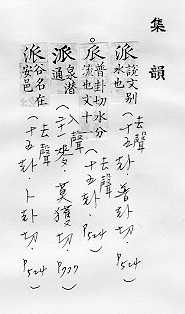 集韻
派 說文別水也 (去聲 十五卦·普卦切·P524)
𠂢 普卦切水分流也文十 (去聲 十五卦·P524)
派 泉潛通 (入聲 二十一麥·莫獲切·)
派 谷名在安邑 (去聲 十五卦·卜卦切·P524)